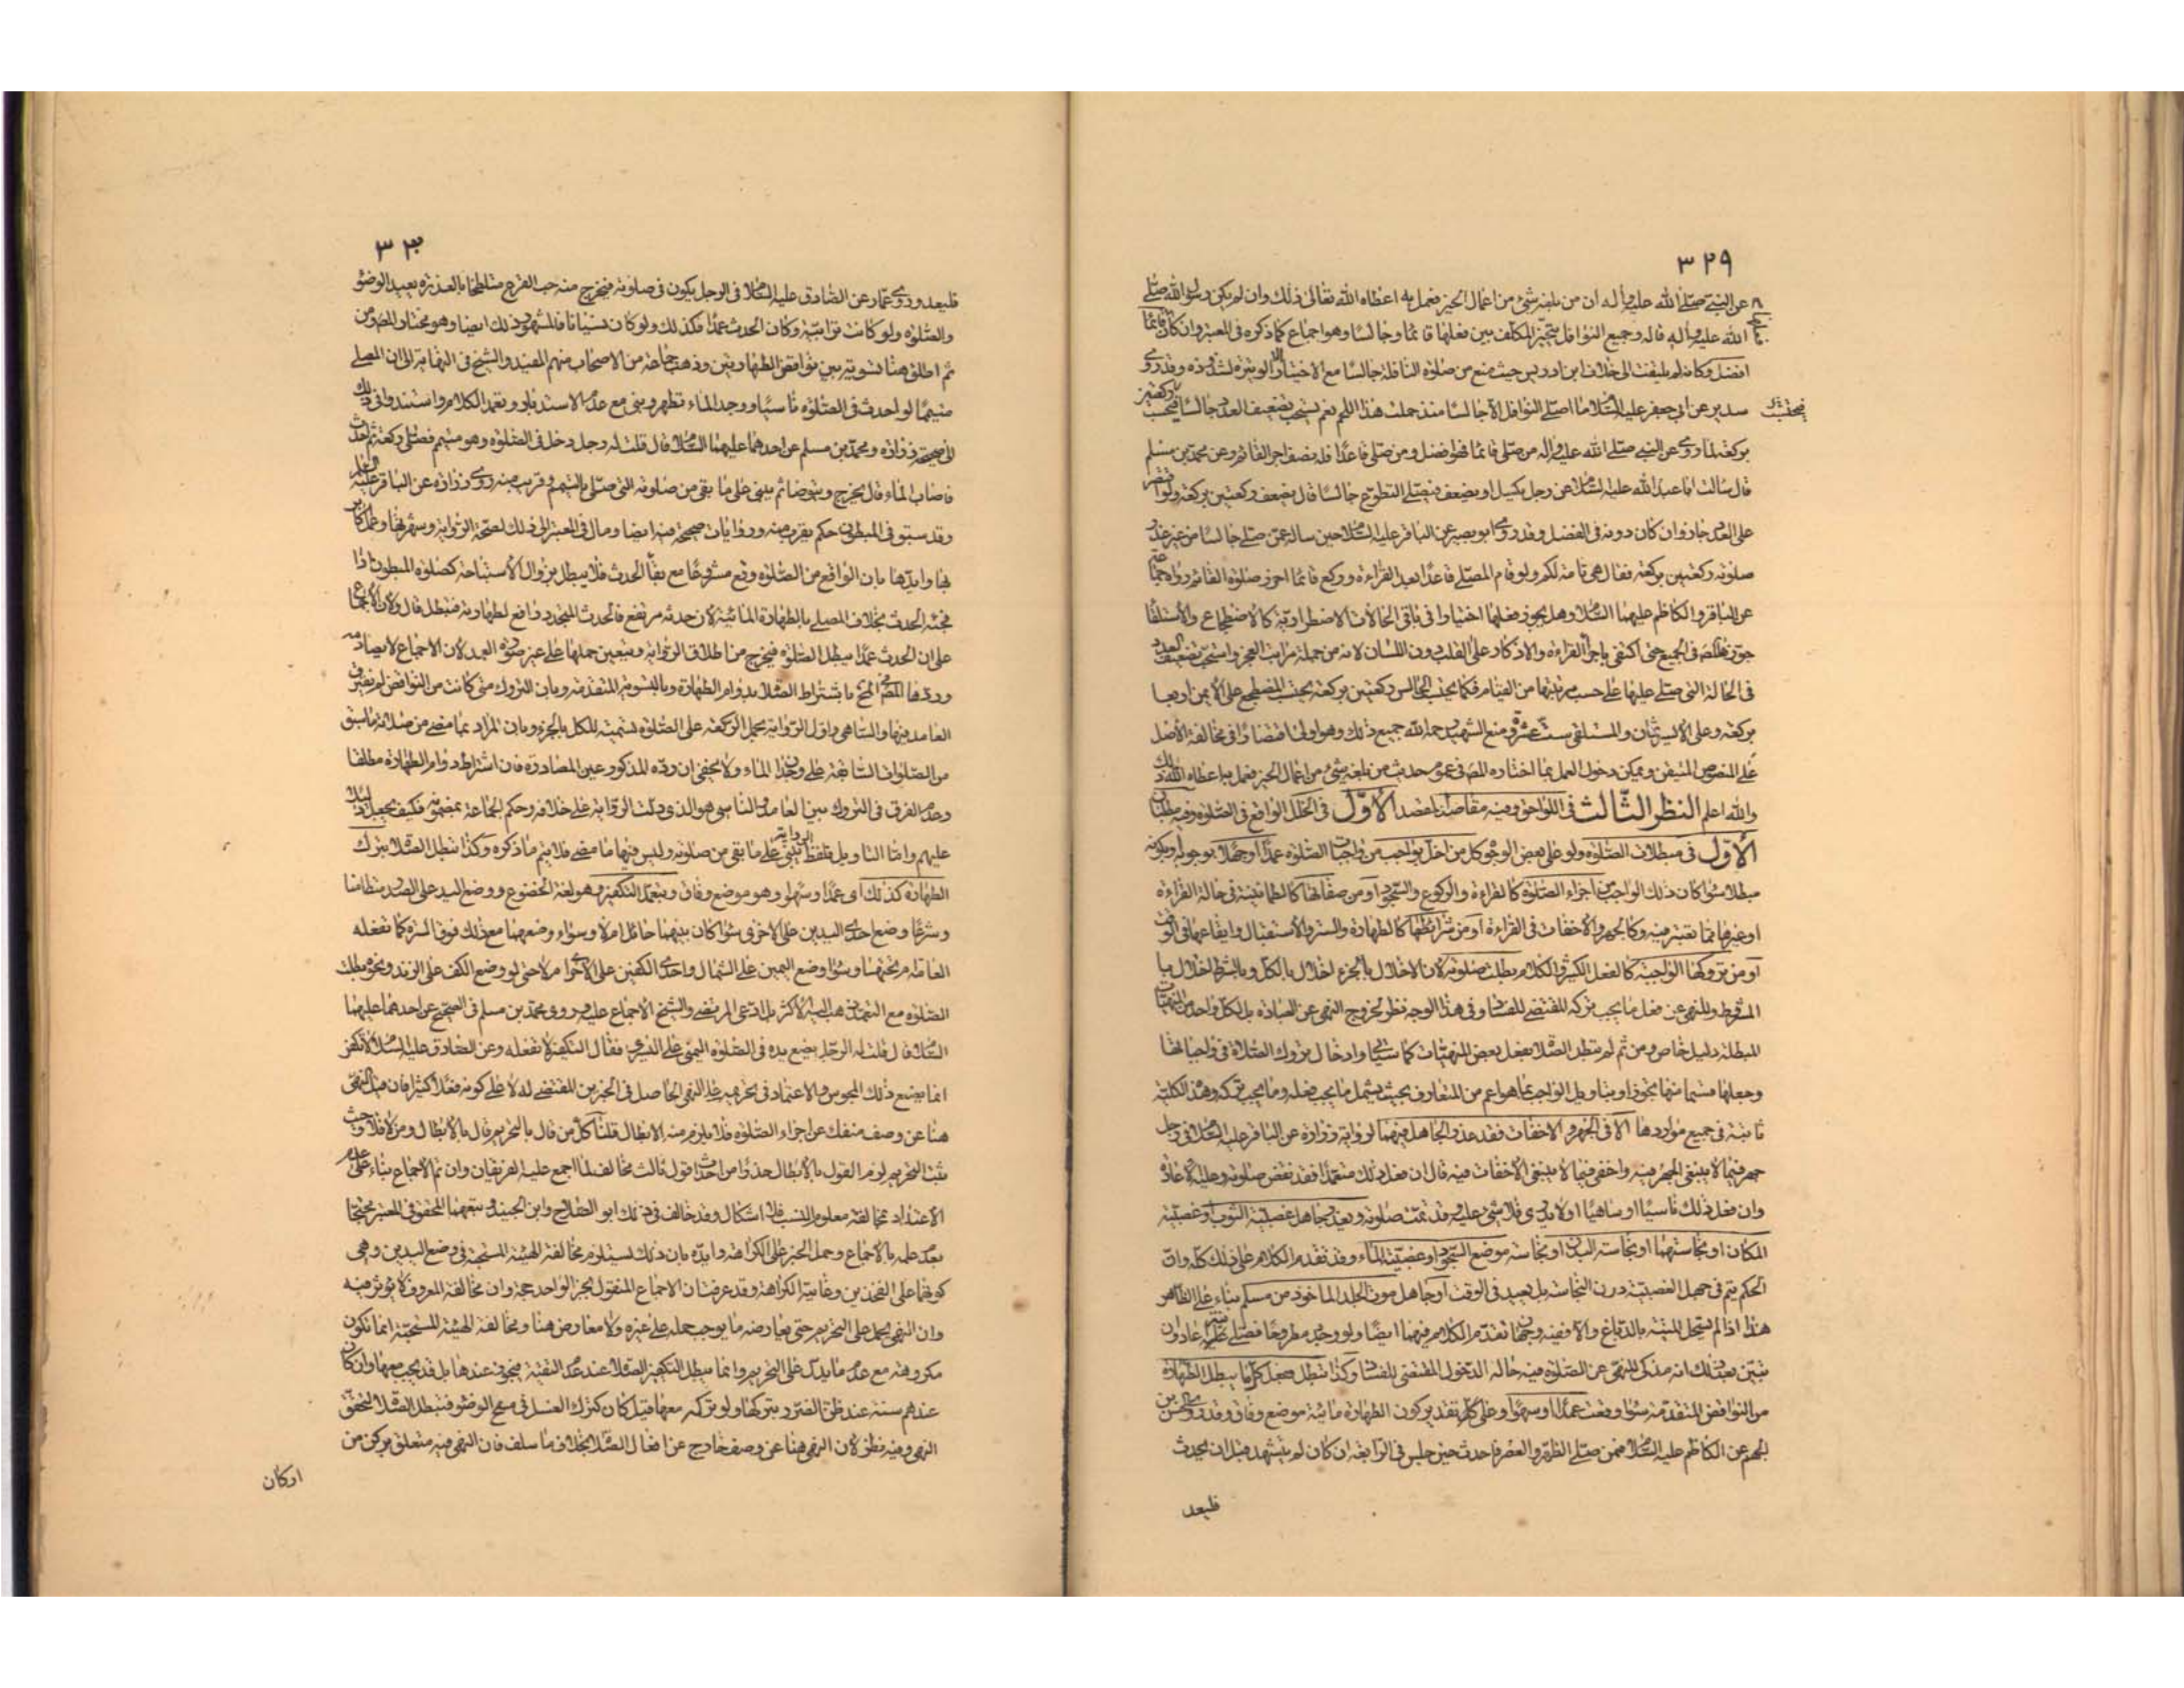 ٣٢٩
عن النبي صلى الله عليه وآله ان من بلغه شئ من اعمال الخير فعمل به اعطاه الله تعالى ذلك وان لم يكن رسول الله صلى
الله عليه وآله قاله وجميع النوافل يتخير المكلف بين فعلها قائما وجالسا وهو اجماع كما ذكره في المعتبر وان كان قائما
افضل وكانه لم يلتفت الى خلاف ابن ادريس حيث منع من صلوة النافلة جالسا مع الاختيار الا الوتيرة لشذوذه وقد روى
سدير عن ابي جعفر عليه السلام ما اصلى النوافل الا جالسا منذ حملت هذا اللحم نعم يستحب تضعيف العدد جالسا فيحتسب ركعتين
بركعة لما روى عن النبي صلى الله عليه وآله من صلى قائما فهو افضل ومن صلى قاعدا فله نصف اجر القائم وعن محمد بن مسلم
قال سالت ابا عبد الله عليه السلام عن رجل يكسل او يضعف فيصلي التطوع جالسا قال يضعف ركعتين بركعة ولو اقتصر
على العدد جاز وان كان دونه في الفضل وقد روى ابو بصير عن الباقر عليه السلام حين ساله عمن صلى جالسا من غير عذر
صلوته ركعتين بركعة فقال هي تامة لكم ولو قام المصلي قاعدا بعد القراءة وركع قائما احرز صلوة القائم رواه حماد
عن الباقر والكاظم عليهما السلام وهل يجوز فعلها اختيارا في باقي الحالات الاضطرارية كالاضطجاع والاستلقاء
جوزه المص في الجميع حتى اكتفى باجراء القراءة والاذكار على القلب دون اللسان لانه من جملة مراتب العجز واستحب تضعيف العدد
في الحالة التي صلى عليها على حسب مرتبتها من القيام فكما يحتسب الجالس ركعتين بركعة يحتسب المضطجع على الايمن اربعا
بركعة وعلى الايسر ثمان والمستلقي ست عشرة ومنع الشهيد رحمه الله جميع ذلك وهو اولى اقتصارا في مخالفة الاصل
على المنصوص المتيقن ويمكن دخول العمل بما اختاره المص في عموم حديث من بلغه شئ من اعمال الخير فعمل به اعطاه الله ذلك
والله اعلم النظر الثالث في اللواحق وفيه مقاصد المقصد الاول في الخلل الواقع في الصلوة وفيه مطلبان
الاول في مبطلات الصلوة ولو على بعض الوجوه كل من اخل بواجب من واجبات الصلوة عمدا او جهلا بوجوبه او بكونه
مبطلا سواء كان ذلك الواجب من اجزاء الصلوة كالقراءة والركوع والسجود او من صفاتها كالطمانينة في حالة القراءة
او غيرها مما تعتبر فيه وكالجهر والاخفات في القراءة او من شرائطها كالطهارة والستر والاستقبال وايقاعها في الوقت
او من تروكها الواجبة كالفعل الكثير والكلام بطلت صلوته لان الاخلال بالجزء اخلال بالكل وبالشرط اخلال با
المشروط وللنهي عن فعل ما يجب تركه المقتضي للفساد وفي هذا الوجه نظر لخروج النهي عن العبادة بل لكل واحد من المنهيات
المبطلة دليل خاص ومن ثم لم تبطل الصلوة بفعل بعض المنهيات كما سياتي وادخال تروك الصلاة في واجباتها
وجعلها قسيما منها تجوز او بتاويل الواجب بما هو اعم من المتعارف بحيث يشمل ما يجب فعله وما يجب تركه وهذه الكلية
ثابتة في جميع مواردها الا في الجهر والاخفات فقد عذر الجاهل فيهما لرواية زرارة عن الباقر عليه السلام في رجل
جهر فيما لا ينبغي الجهر فيه واخفى فيما لا ينبغي الاخفات فيه قال ان فعل ذلك متعمدا فقد نقض صلوته وعليه الاعادة
وان فعل ذلك ناسيا او ساهيا او لا يدري فلا شئ عليه وقد تمت صلوته ويعذر جاهل غصبية الثوب او غصبية
المكان او نجاستهما او نجاسة البدن او نجاسة موضع السجود او غصبية الماء وقد تقدم الكلام على ذلك كله وان
الحكم يتم في جهل الغصبية دون النجاسة بل يعيد في الوقت او جاهل موت الجلد الماخوذ من مسلم بناء على الظاهر
هذا اذا لم يستحل الميتة بالدباغ والا ففيه وجهان تقدم الكلام فيهما ايضا ولو وجده مطروحا فصلى فيه اعاد وان
تبين بعد ذلك انه مذكى للنهي عن الصلوة فيه حالة الدخول المقتضي للفساد وكذا تبطل بفعل كل ما يبطل الطهارة
من النواقض المتقدمة سواء وقعت عمدا او سهوا وعلى كل تقدير كون الطهارة مائية موضع وفاق وقد روى الحسن بن
الجهم عن الكاظم عليه السلام فيمن صلى الظهر والعصر فاحدث حين جلس في الرابعة ان كان لم يتشهد قبل ان يحدث
فليعد
٣٣٠
فليعد وروى عمار عن الصادق عليه السلام في الرجل يكون في صلوته فيخرج منه حب القرع متلطخا بالعذرة يعيد الوضوء
والصلوة ولو كانت ترابية وكان الحدث عمدا فكذلك ولو كان نسيانا فالمشهور ذلك ايضا وهو مختار المص ومن
ثم اطلق هنا لتسويته بين نواقض الطهارتين وذهب جماعة من الاصحاب منهم المفيد والشيخ في النهاية الى ان المصلي
متيمما لو احدث في الصلوة ناسيا ووجد الماء تطهر وبنى مع عدم الاستدبار وتعمد الكلام واستندوا في ذلك
الى صحيحة زرارة ومحمد بن مسلم عن احدهما عليهما السلام قال قلت له رجل دخل في الصلوة وهو متيمم فصلى ركعة ثم احدث
فاصاب الماء قال يخرج ويتوضا ثم يبني على ما بقي من صلوته التي صلى بالتيمم وقريب منه روى زرارة عن الباقر عليه السلام
وقد سبق في المبطون حكم يقرب منه وروايات صحيحة فيه ايضا ومال في المعتبر الى ذلك لصحة الرواية وشهرتها وعمل الاكابر
بها وايدها بان الواقع من الصلوة وقع مشروعا مع بقاء الحدث فلا يبطل بزوال الاستباحة كصلوة المبطون اذا
فجئه الحدث بخلاف المصلي بالطهارة المائية لان حدثه مرتفع فالحدث المتجدد رافع لطهارته فتبطل قال ولان الاجماع
على ان الحدث عمدا يبطل الصلوة فيخرج من اطلاق الرواية ويتعين حملها على غير صورة العمد لان الاجماع لا يصادمه
وردها المص في المخ باشتراط الصلاة بدوام الطهارة وبالتسوية المتقدمة وبان التروك متى كانت من النواقض لم يفترق
العامد فيها والساهي واول الرواية بحمل الركعة على الصلوة تسمية للكل بالجزء وبان المراد بما مضى من صلاته ما سبق
من الصلوات السابقة على وجدان الماء ولا يخفى ان رده المذكور عين المصادرة فان اشتراط دوام الطهارة مطلقا
وعدم الفرق في التروك بين العامد والناسي هو الذي دلت الرواية على خلافه وحكم الجماعة بمضمونه فكيف يجعل دليلا
عليهم واما التاويل فلفظ الرواية يبني على ما بقي من صلوته وليس فيها ما مضى فلا يتم ما ذكره وكذا تبطل الصلاة بترك
الطهارة كذلك اي عمدا وسهوا وهو موضع وفاق وبتعمد التكفير وهو لغة الخضوع ووضع اليد على الصدر متطامنا
وشرعا وضع احدى اليدين على الاخرى سواء كان بينهما حائل ام لا وسواء وضعهما مع ذلك فوق السرة كما تفعله
العامة ام تحتها وسواء وضع اليمين على الشمال واحدى الكفين على الاخرى ام لا حتى لو وضع الكف على الزند ونحوه بطلت
الصلوة مع التعمد ذهب اليه الاكثر بل ادعى المرتضى والشيخ الاجماع عليه وروى محمد بن مسلم في الصحيح عن احدهما عليهما
السلام قال قلت له الرجل يضع يده في الصلوة اليمنى على اليسرى فقال التكفير لا تفعله وعن الصادق عليه السلام لا تكفر
انما يصنع ذلك المجوس والاعتماد في تحريمه على النهي الحاصل في الخبرين المقتضي له لا على كونه فعلا كثيرا فان قيل النهي
هنا عن وصف منفك عن اجزاء الصلوة فلا يلزم منه الابطال قلنا كل من قال بالتحريم قال بالابطال ومن لا فلا وحيث
يثبت التحريم لزم القول بالابطال حذرا من احداث قول ثالث مخالف لما اجمع عليه الفريقان وان تم الاجماع بناء على عدم
الاعتداد بمخالفة معلوم النسب فلا اشكال وقد خالف في ذلك ابو الصلاح وابن الجنيد وتبعهما المحقق في المعتبر محتجا
بعدم علمه بالاجماع وحمل الخبر على الكراهة وايده بان ذلك يستلزم مخالفة الهيئة المستحبة في وضع اليدين وهي
كونهما على الفخذين وغايته الكراهة وقد عرفت ان الاجماع المنقول بخبر الواحد حجة وان مخالفة المعروف لا يؤثر فيه
وان النهي يحمل على التحريم حتى يعارضه ما يوجب حمله على غيره ولا معارض هنا ومخالفة الهيئة المستحبة انما تكون
مكروهة مع عدم ما يدل على التحريم وانما يبطل التكفير الصلاة عند عدم التقية فيجوز عندها بل قد يجب معها وان كان
عندهم سنة عند ظن الضرر بتركها ولو تركه معها قيل كان كترك الغسل في مسح الوضوء فتبطل الصلاة لتحقق
النهي وفيه نظر لان النهي هنا عن وصف خارج عن افعال الصلاة بخلاف ما سلف فان النهي فيه متعلق بركن من
اركان